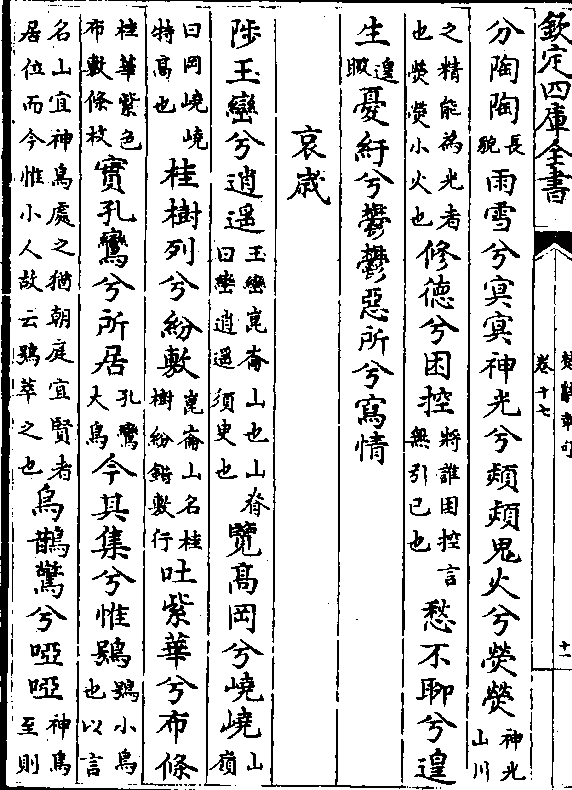 欽定四庫全書
楚辭章句
卷十七
十一
分陶陶長貌雨雪兮冥冥神光兮熲熲鬼火兮熒熒神光山川
之精能為光者也熒熒小火也修德兮困控將誰困控言無引已也愁不聊兮遑
生遑暇憂紆兮鬱鬱惡所兮寫情
哀歲
陟玉巒兮逍遥玉巒崑崙山也山脊曰巒逍遥須臾也覽高岡兮嶢嶢山嶺
曰岡嶢嶢特高也桂樹列兮紛敷崑崙山名桂樹紛錯敷行吐紫華兮布條
桂華紫色布敷條枝實孔鸞兮所居孔鸞大鳥今其集兮惟鴞鴞小鳥也以言
名山宜神鳥處之猶朝庭宜賢者居位而今惟小人故云鴞萃之也烏鵲驚兮啞啞神鳥至則